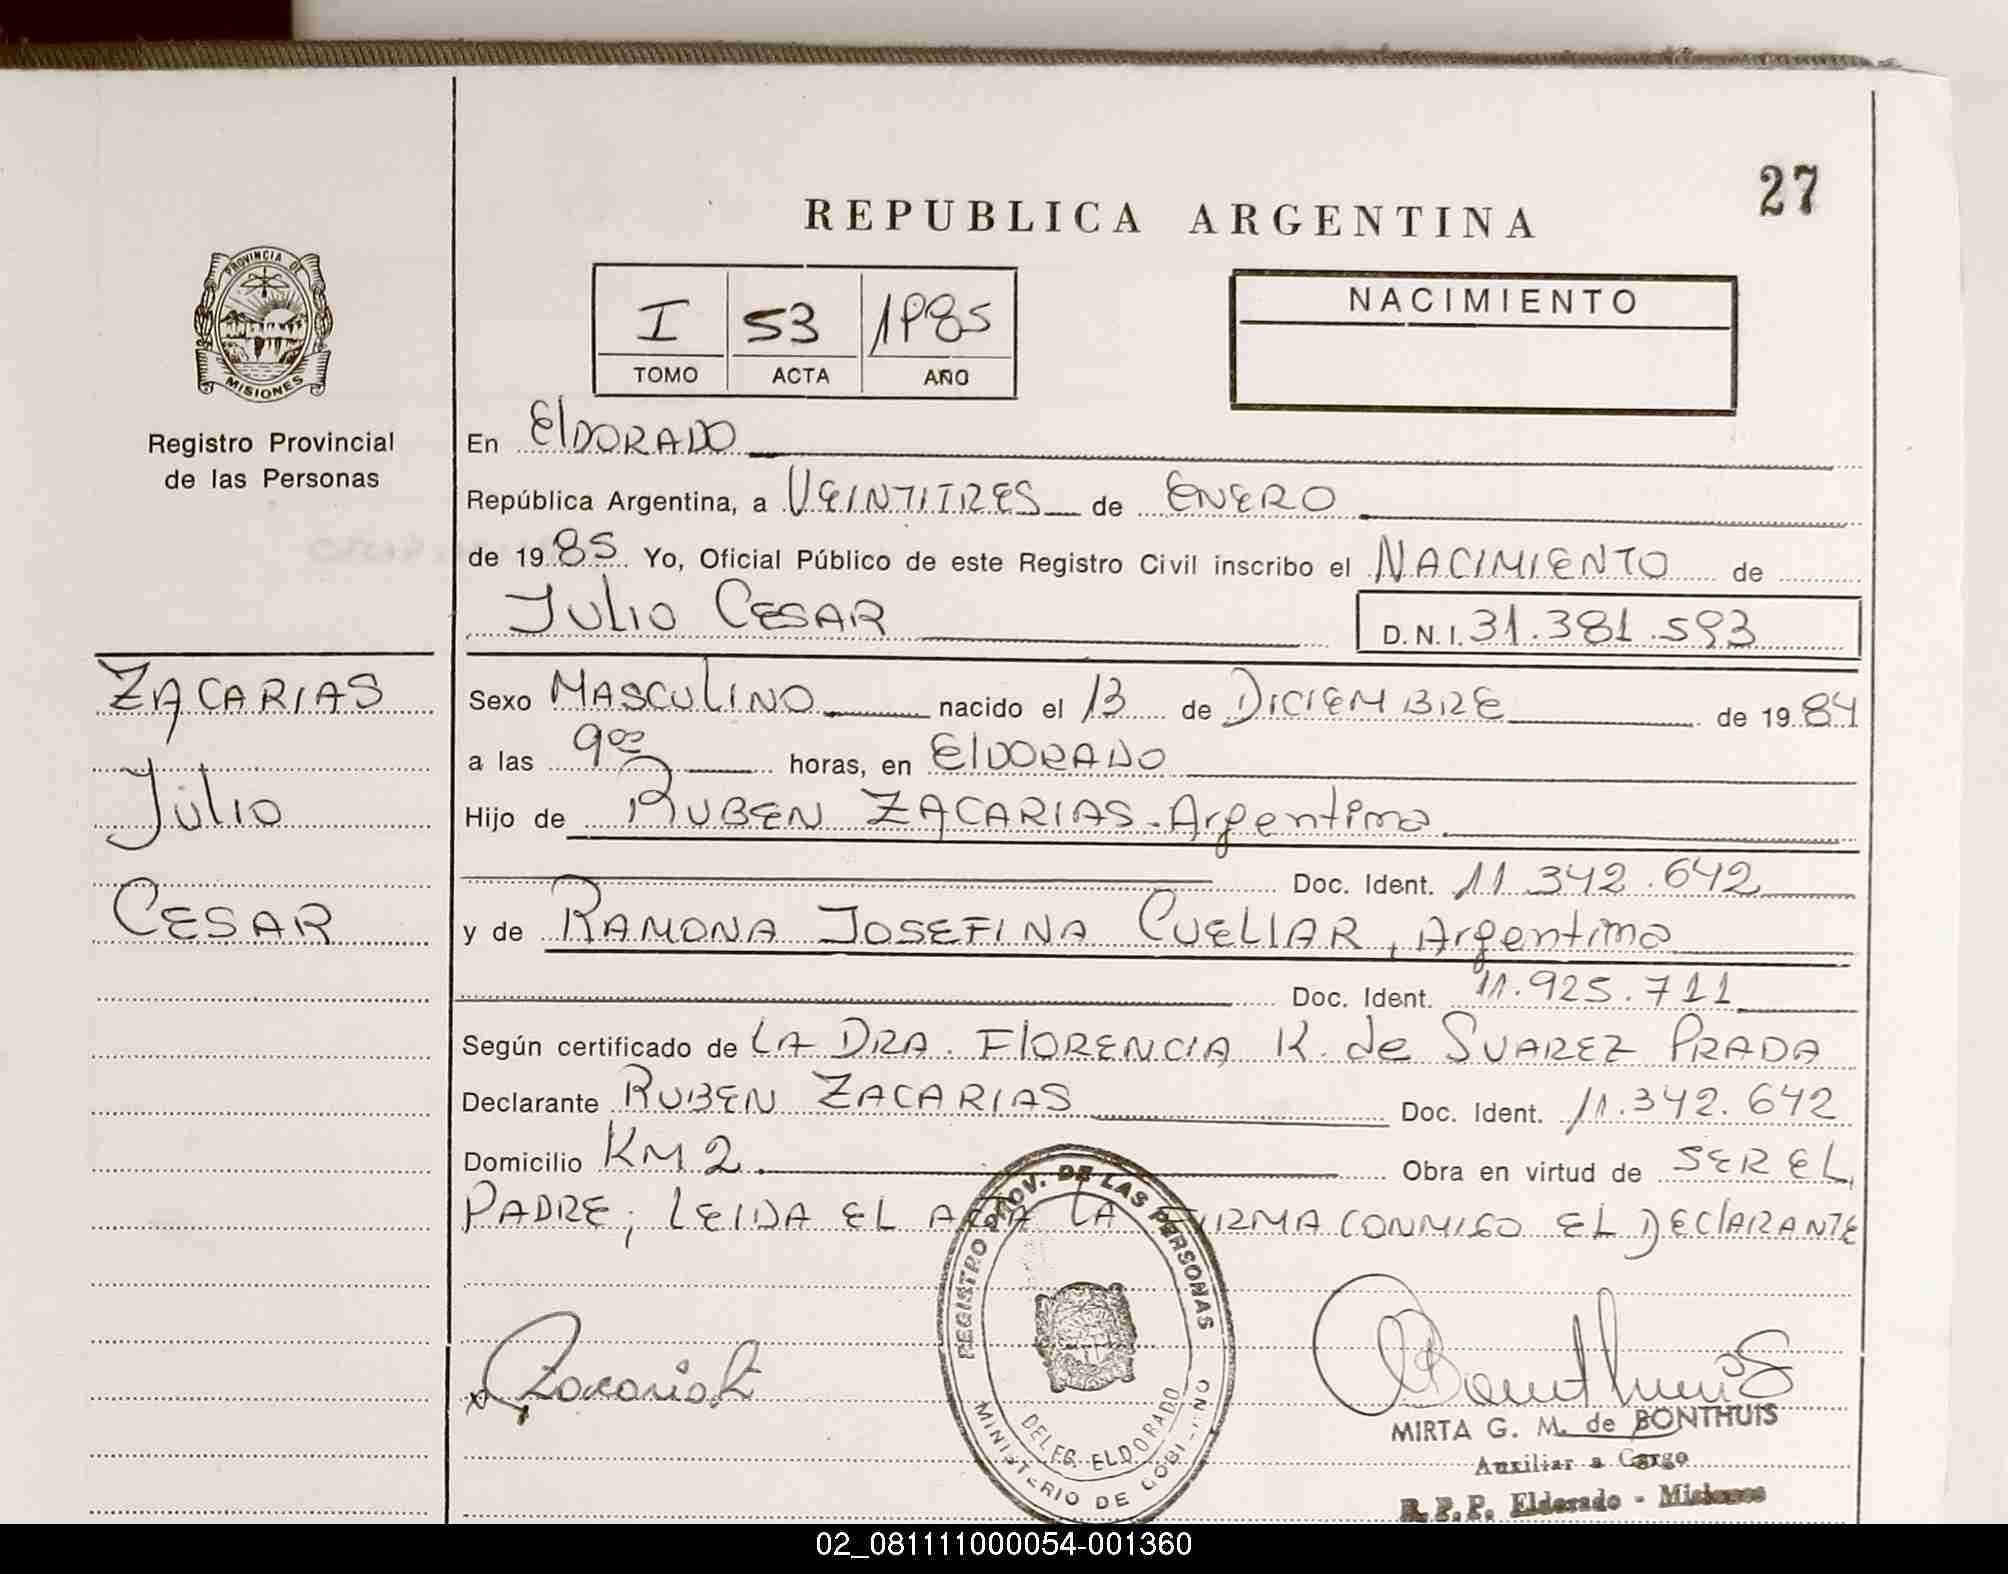 27
REPUBLICA ARGENTINA
PROVINCIA DE
MISIONES
Registro Provincial
de las Personas
I 53 1985
TOMO ACTA AÑO
NACIMIENTO
En ElDORADO
República Argentina, a VEINTITRES de ENERO
de 19 85 Yo, Oficial Público de este Registro Civil inscribo el NACIMIENTO de
JULIO CESAR D.N.I. 31.381.593
ZACARIAS
Julio
CESAR
Sexo MASCULINO nacido el 13 de DICIEMBRE de 19 84
a las 9 00 horas, en ElDORADO
Hijo de RUBEN ZACARIAS - Argentino
Doc. Ident. 11.342.642
y de RAMONA JOSEFINA CUELLAR, Argentina
Doc. Ident. 11.925.711
Según certificado de LA DRA. FLORENCIA K. de SUAREZ PRADA
Declarante RUBEN ZACARIAS Doc. Ident. 11.342.642
Domicilio KM 2 Obra en virtud de SER EL
PADRE; LEIDA EL ACTA LA FIRMA CONMIGO EL DEClARANTE
REGISTRO PROV. DE LAS PERSONAS
DELEG. ELDORADO
MINISTERIO DE GOBIERNO
x Zacarias R
Bonthuis
MIRTA G. M. de BONTHUIS
Auxiliar a Cargo
R.P.P. Eldorado - Misiones
02_081111000054-001360